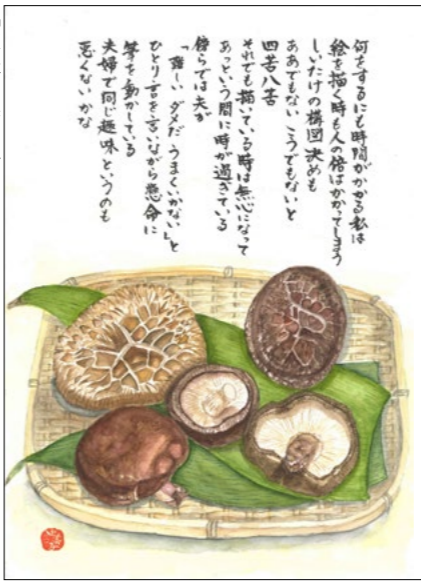 何をするにも時間がかかる私は
絵を描く時も人の倍はかかってしまう
しいたけの構図決めも
ああでもない こうでもないと
四苦八苦
それでも描いている時は無心になって
あっという間に時が過ぎている
傍らでは夫が
「難しい ダメだ うまくいかない」と
ひとり言を言いながら懸命に
筆を動かしている
夫婦で同じ趣味というのも
悪くないかな